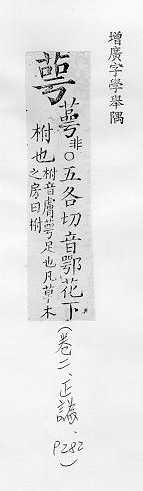 增廣字學舉隅
萼 蕚非○五各切音鄂花下
柎也柎音膚萼足也凡草木
之房曰柎
(卷二、正譌、
P282)